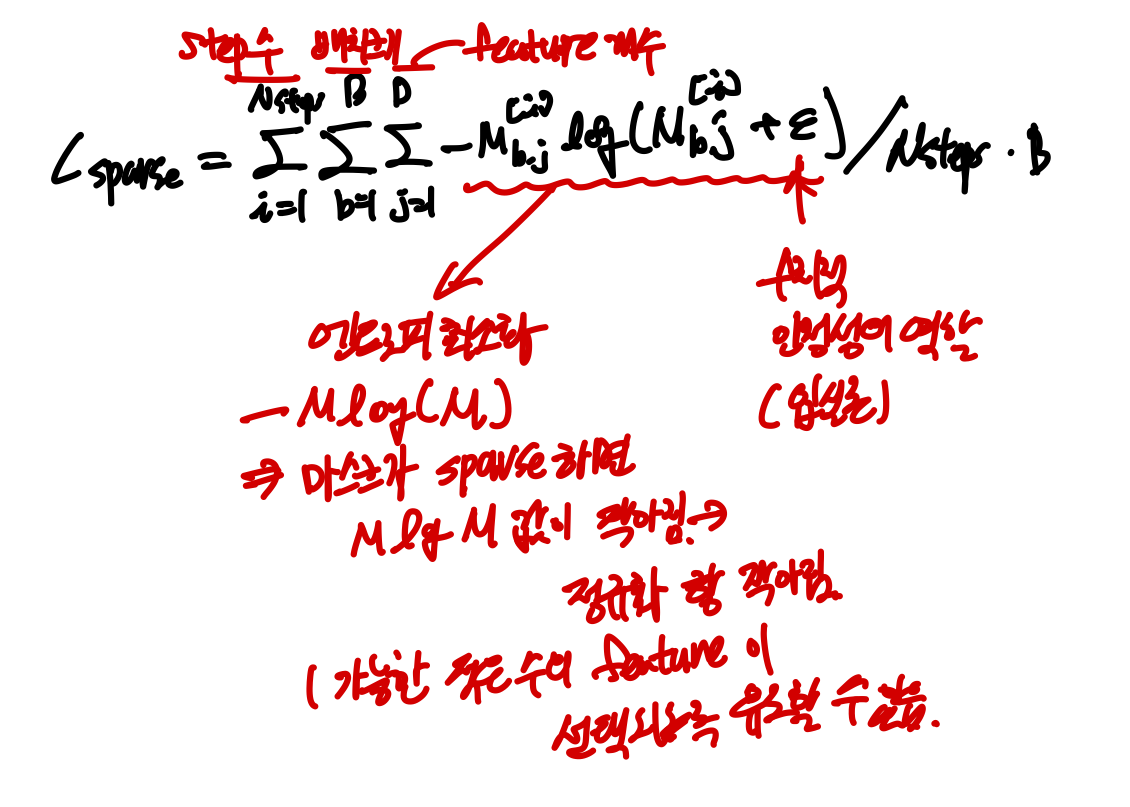 step수 배치크기 feature 개수
L_sparse = Σ_{i=1}^{Nsteps} Σ_{b=1}^{B} Σ_{j=1}^{D} -M_{b,j}^{[i]} log(M_{b,j}^{[i]} + ε) / Nsteps · B
수치적
안정성의 역할
(입실론)
엔트로피 최소화
- M log(M)
⇒ 마스크가 sparse 하면
M log M 값이 작아짐. →
정규화 항 작아짐.
( 가능한 적은 수의 feature 이
선택되도록 유도할 수 있음.